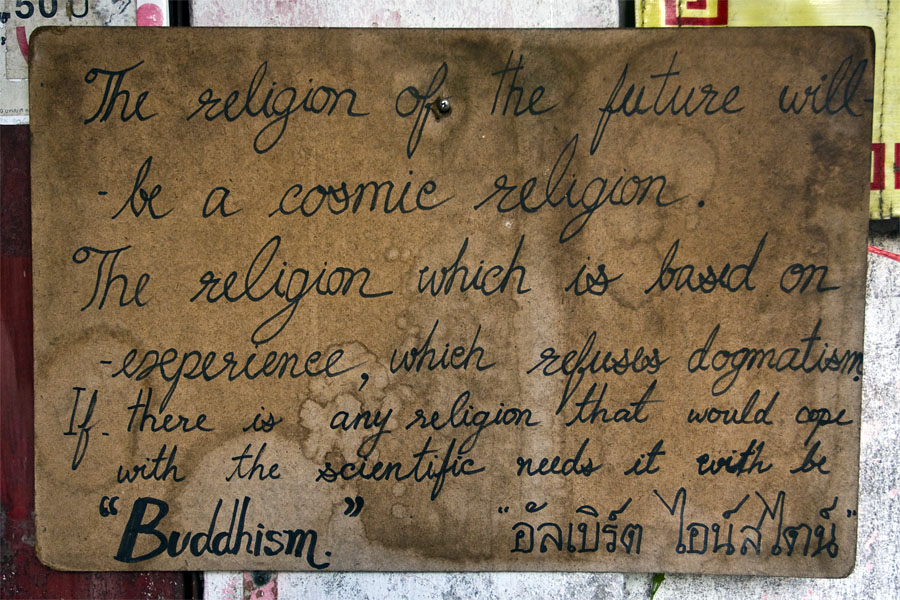 .50
The religion of the future will-
-be a cosmic religion.
The religion which is based on
-experience, which refuses dogmatism.
If. there is any religion that would cope
with the scientific needs it with be
"Buddhism." "อัลเบิร์ต ไอน์สไตน์"